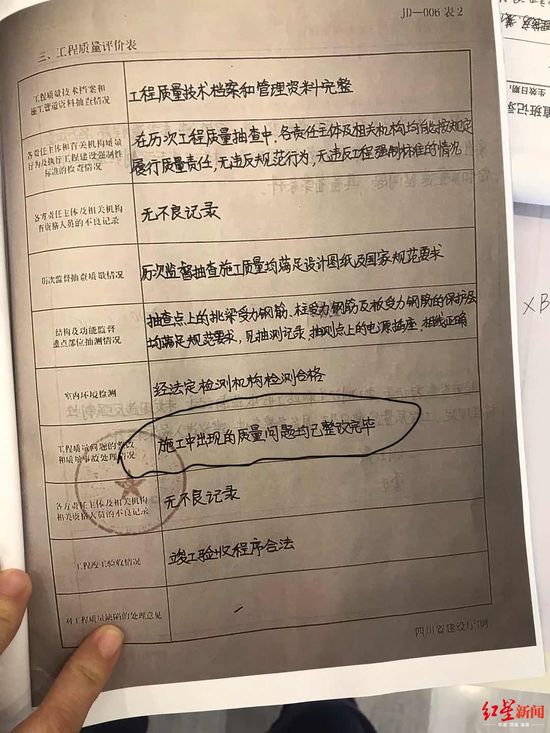 JD—006 表2
三、工程质量评价表
工程质量技术档案和
施工管理资料抽查情况
工程质量技术档案和管理资料完整
各责任主体和有关机构质量
行为及执行工程建设强制性
标准的检查情况
在历次工程质量抽查中,各责任主体及相关机构均能按规定
履行质量责任,无违反规范行为,无违反工程强制标准的情况
各方责任主体及相关机构
有资格人员的不良记录
无不良记录
历次监督抽查质量情况
历次监督抽查施工质量均满足设计图纸及国家规范要求
结构及功能监督
重点部位抽测情况
抽查点上的挑梁受力钢筋、柱受力钢筋及板受力钢筋的保护层
均满足规范要求,见抽测记录,抽测点上的电源插座,相线正确
室内环境检测
经法定检测机构检测合格
工程质量问题的整改
和质量事故处理情况
施工中出现的质量问题均已整改完毕
各方责任主体及相关机构
相关资格人员的不良记录
无不良记录
工程竣工验收情况
竣工验收程序合法
对工程质量缺陷的处理意见
四川省建设厅制
生效日期:
查班记录
×B
红星新闻